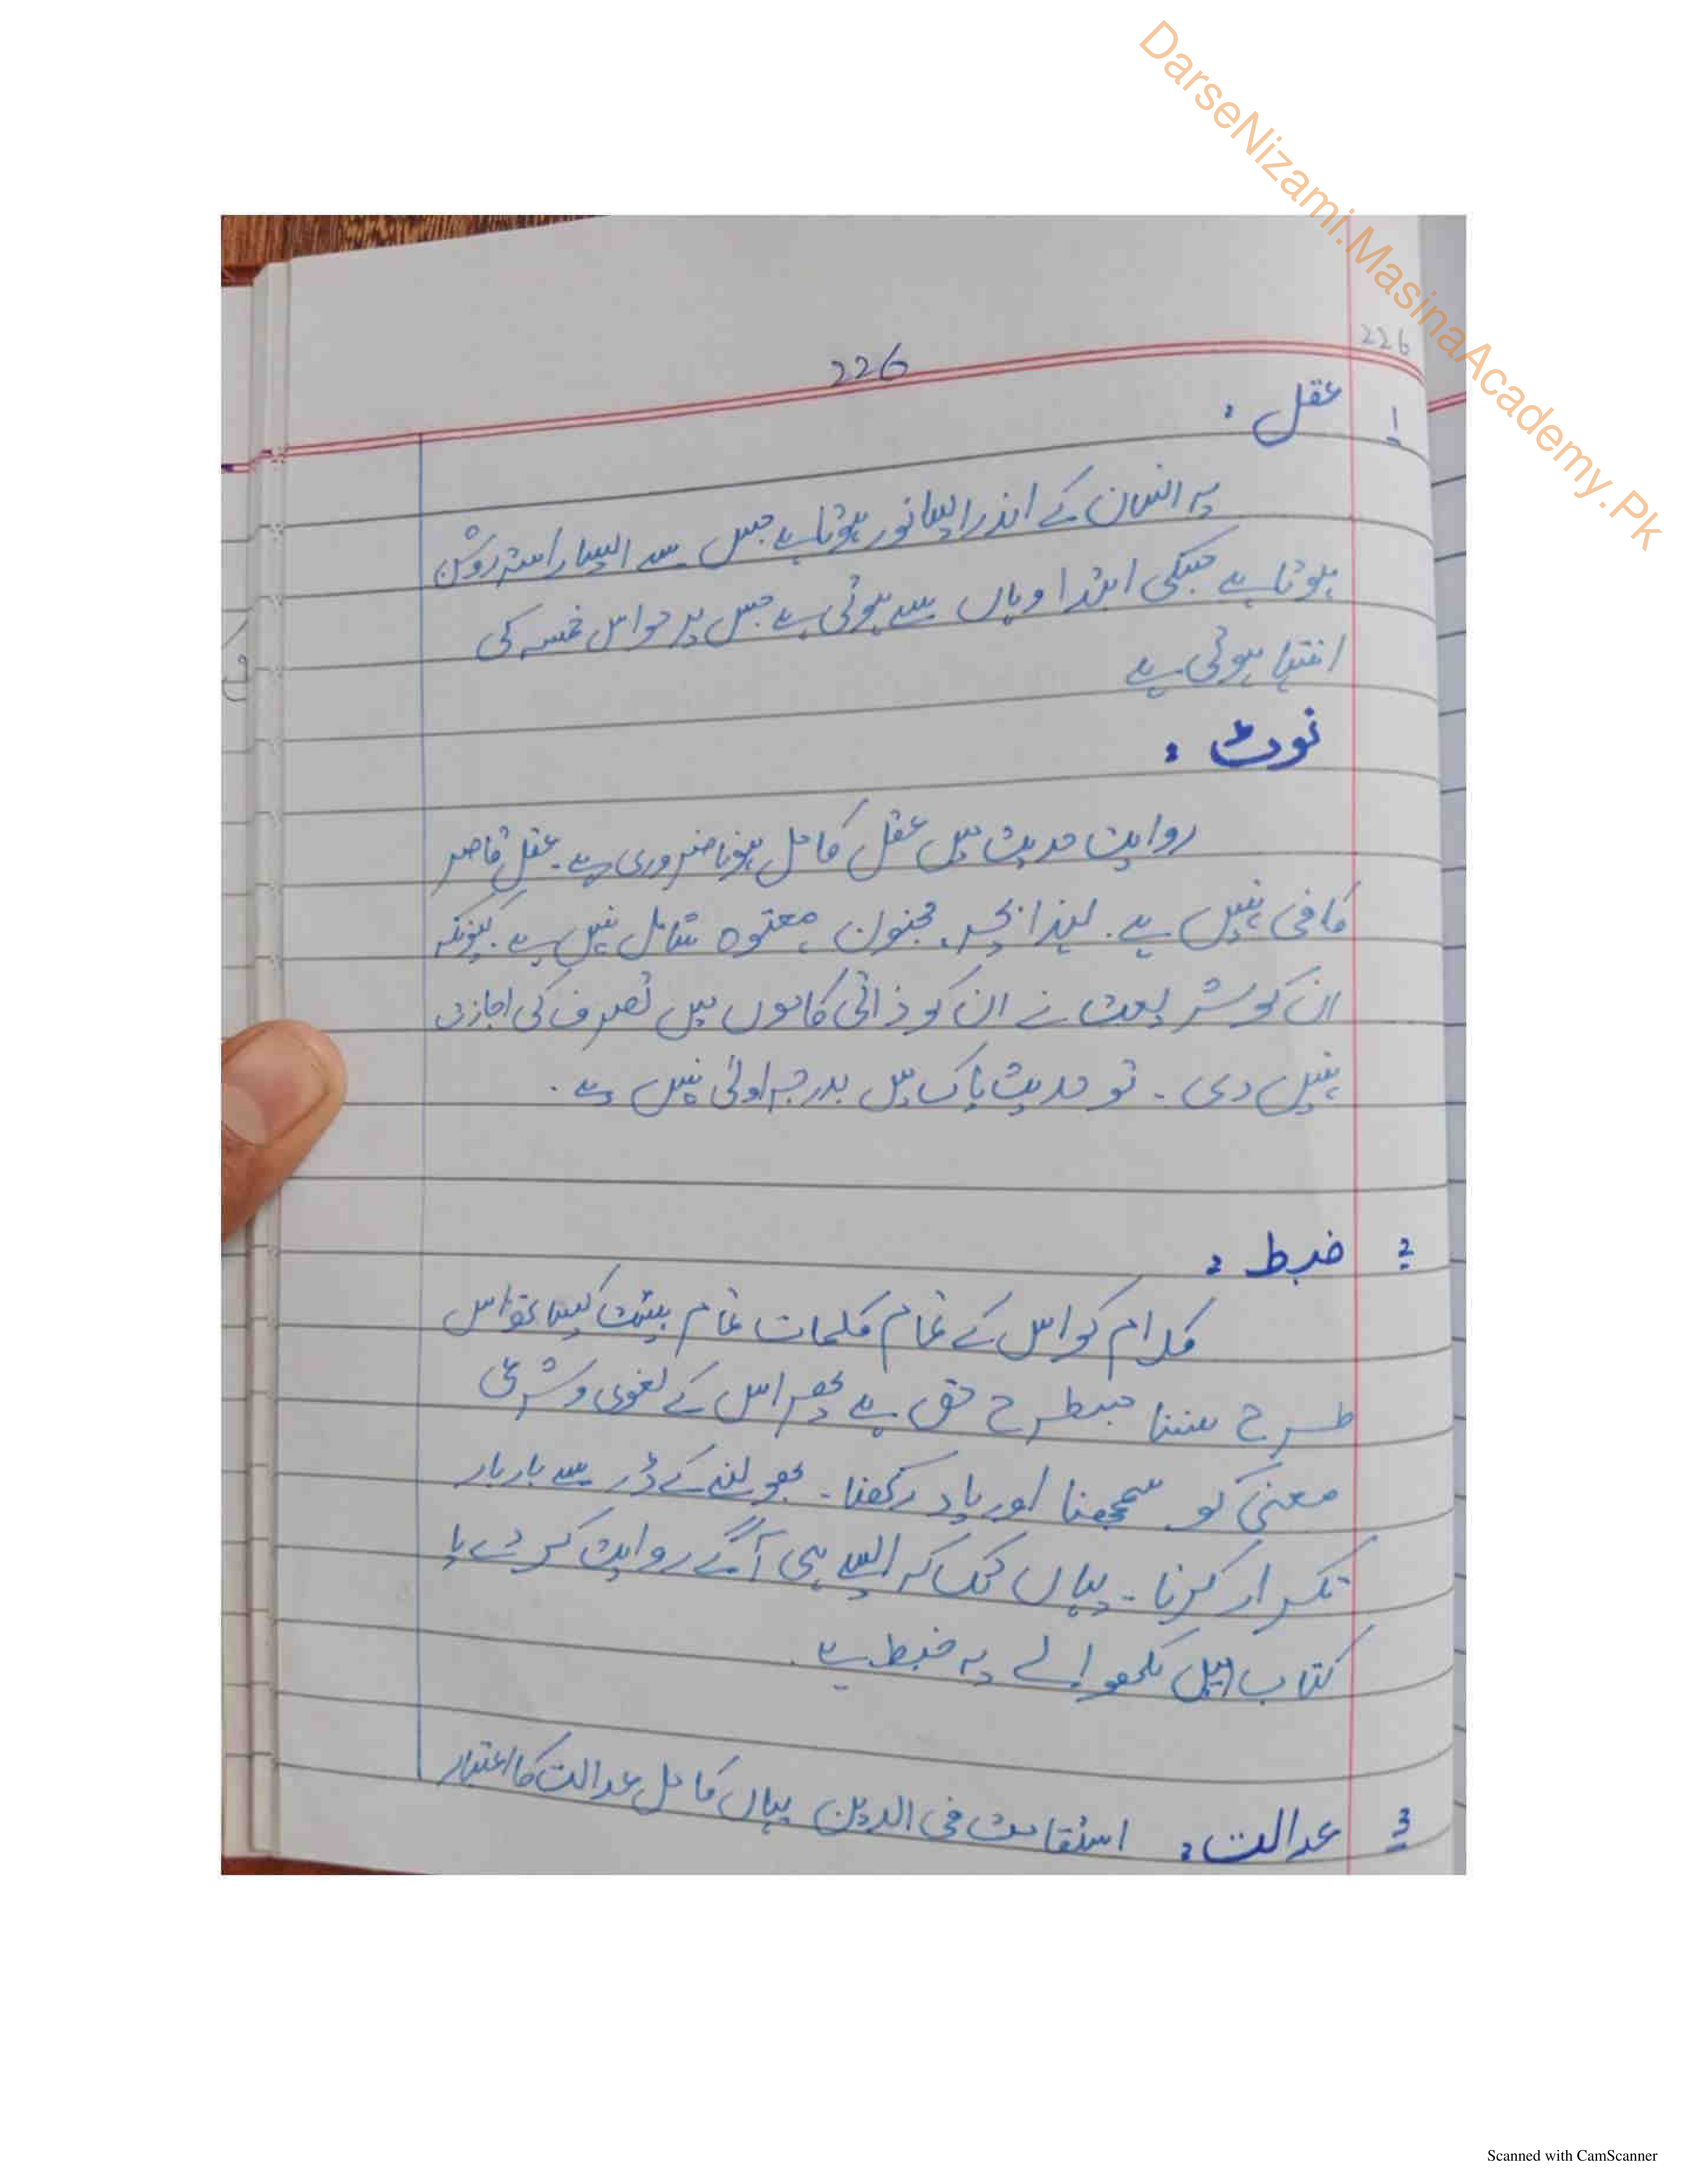 DarseNizami.MasinaAcademy.Pk
226
226
1 عقل :
یہ انسان کے اندر ایسا نور ہوتا ہے جس سے ایسا راستہ روشن
ہوتا ہے جسکی ابتدا وہاں سے ہوتی ہے جس پر حواس خمسہ کی
انتہا ہوتی ہے
نوٹ :
روایت حدیث میں عقل کامل ہونا ضروری ہے۔ عقل قاصر
کافی نہیں ہے۔ لہذا بچہ، مجنون، معتوہ شامل نہیں ہے کیونکہ
ان کو شریعت نے ان کو ذاتی کاموں میں تصرف کی اجازت
نہیں دی۔ تو حدیث پاک میں بدرجہ اولی نہیں ہے۔
2 ضبط :
کلام کو اس کے تمام کلمات تمام ہیئت کیساتھ اس
طرح سننا جسطرح حق ہے پھر اس کے لغوی و شرعی
معنی کو سمجھنا اور یاد رکھنا۔ بھولنے کے ڈر سے بار بار
تکرار کرنا۔ یہاں تک کہ ایسے ہی آگے روایت کر دے یا
کتاب میں لکھوا لے یہ ضبط ہے۔
3 عدالت : استقامت فی الدین یہاں کامل عدالت کا اعتبار
Scanned with CamScanner